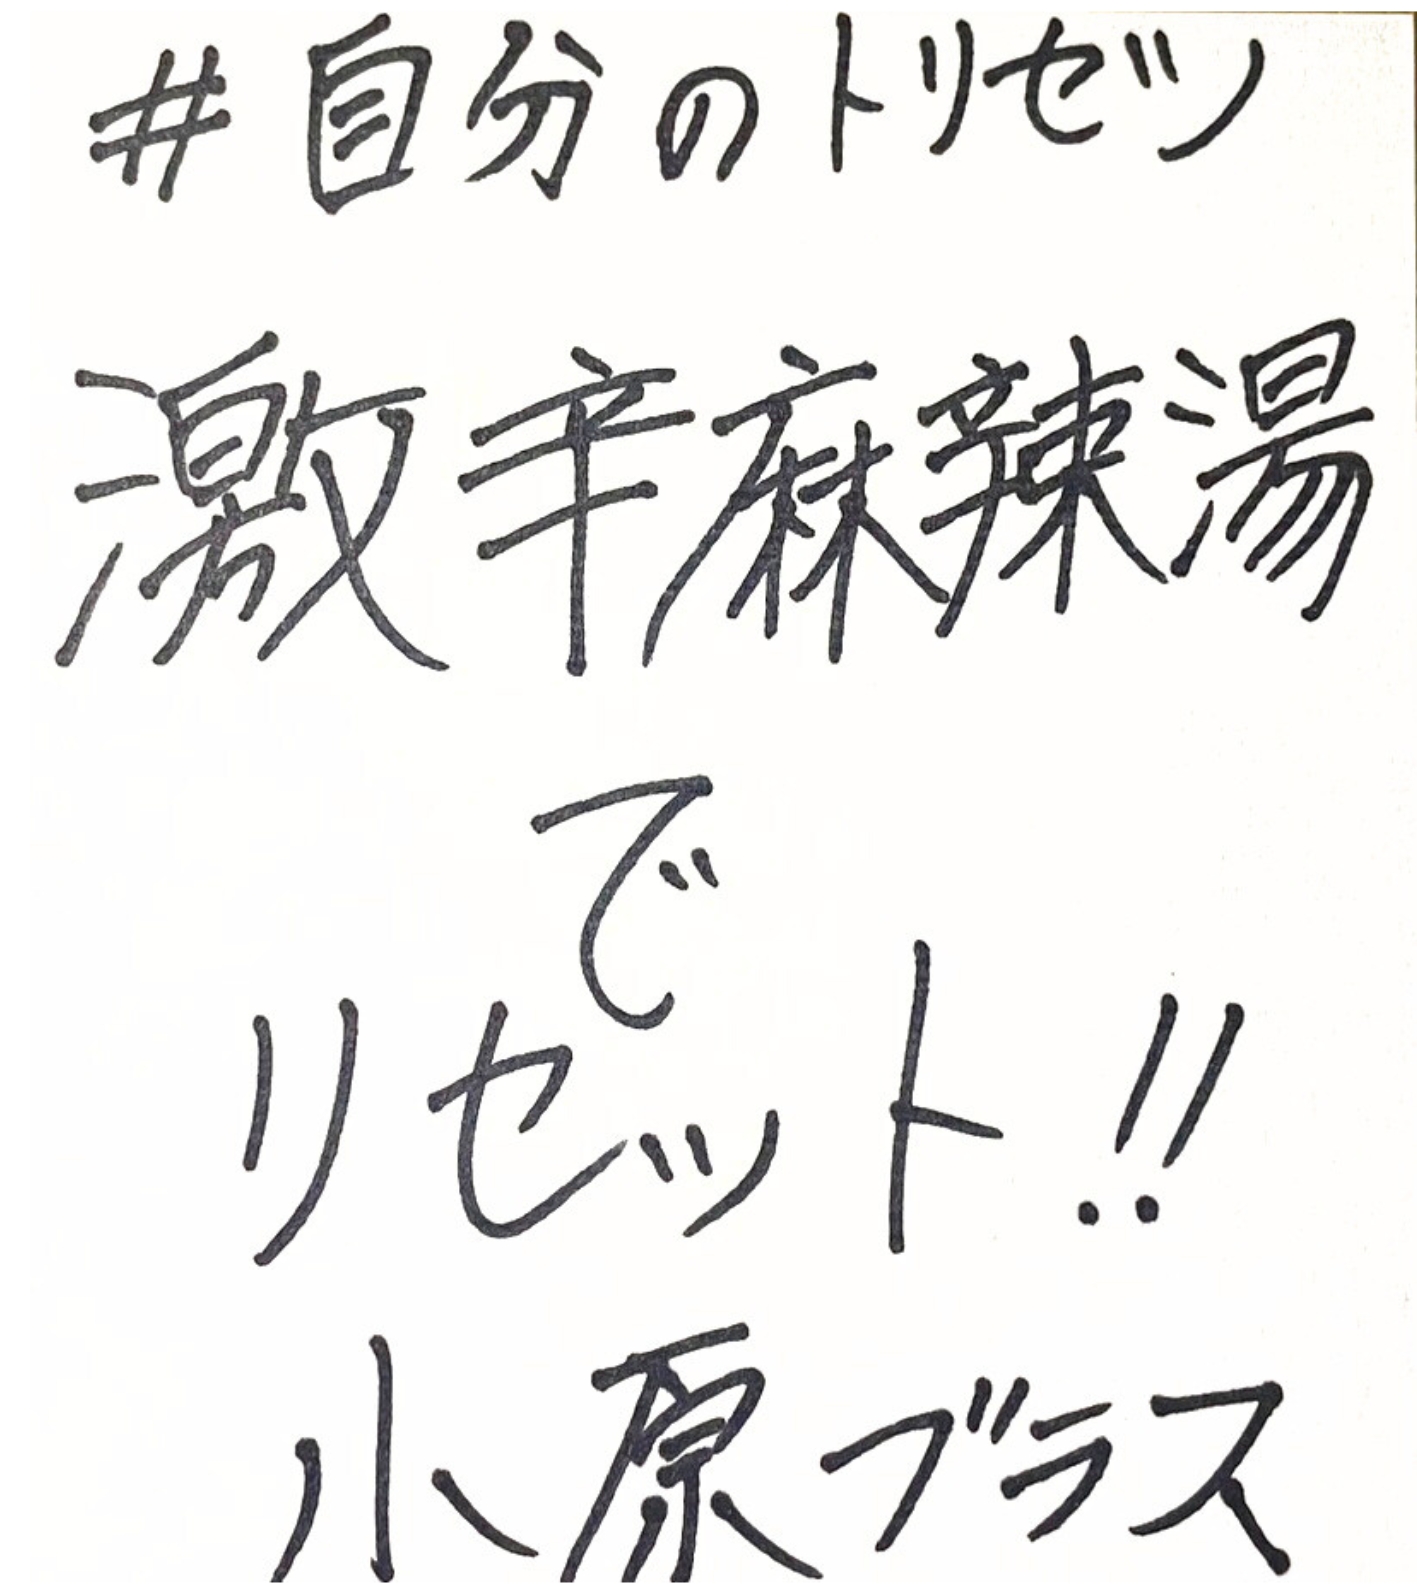 #自分のトリセツ
激辛麻辣湯
で
リセット!!
小原ブラス